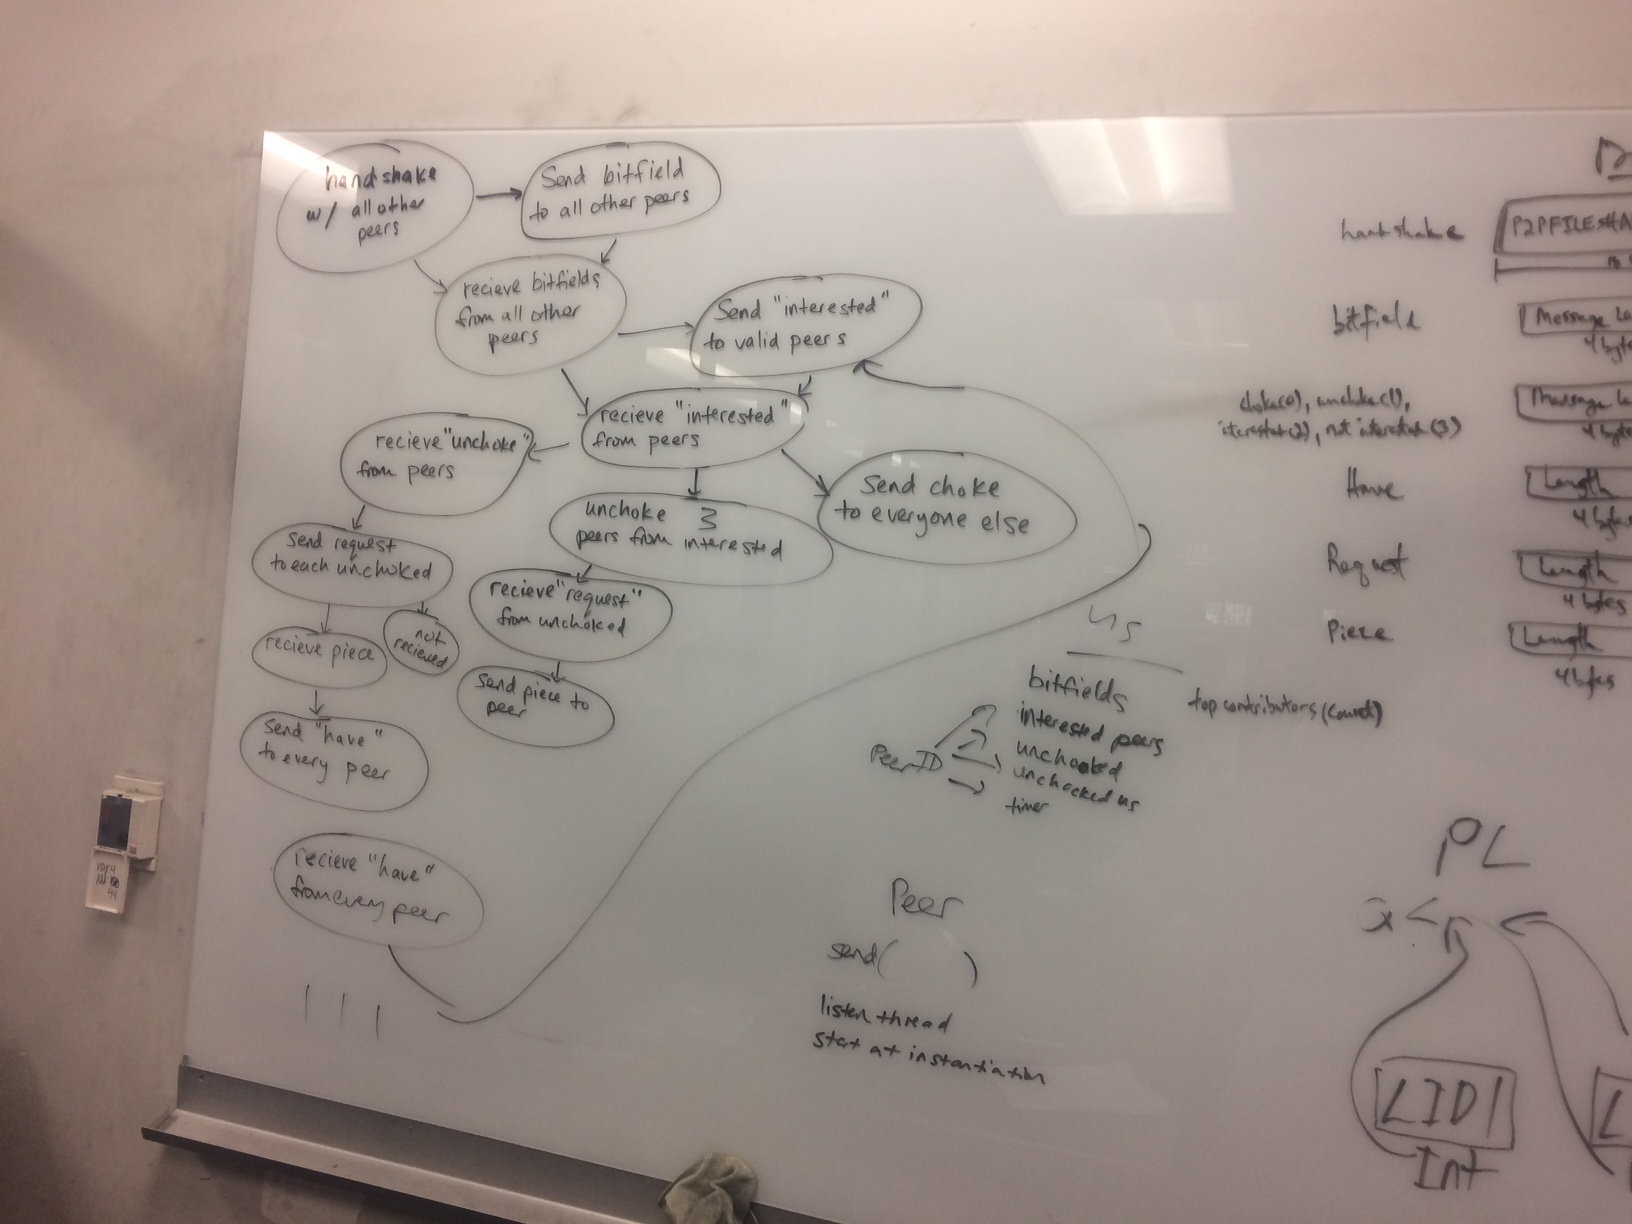 handshake
w/ all other
peers
Send bitfield
to all other peers
recieve bitfields
from all other
peers
Send "interested"
to valid peers
recieve "interested"
from peers
recieve "unchoke"
from peers
Send choke
to everyone else
unchoke 3
peers from interested
send request
to each unchoked
not
recieved
recieve "request"
from unchoked
recieve piece
send piece to
peer
send "have"
to every peer
recieve "have"
from every peer
us
bitfields
interested peers
unchooked
unchocked us
timer
PeerID
top contributors (count)
Peer
send( )
listen thread
start at instantiation
handshake
P2PFILESHA
bitfield
Message Le
4 byte
choke(0), unchoke(1),
interested(2), not interested(3)
Message Le
4 byte
Have
Length
4 bytes
Request
Length
4 bytes
Piece
Length
4 bytes
PL
LID1
Int